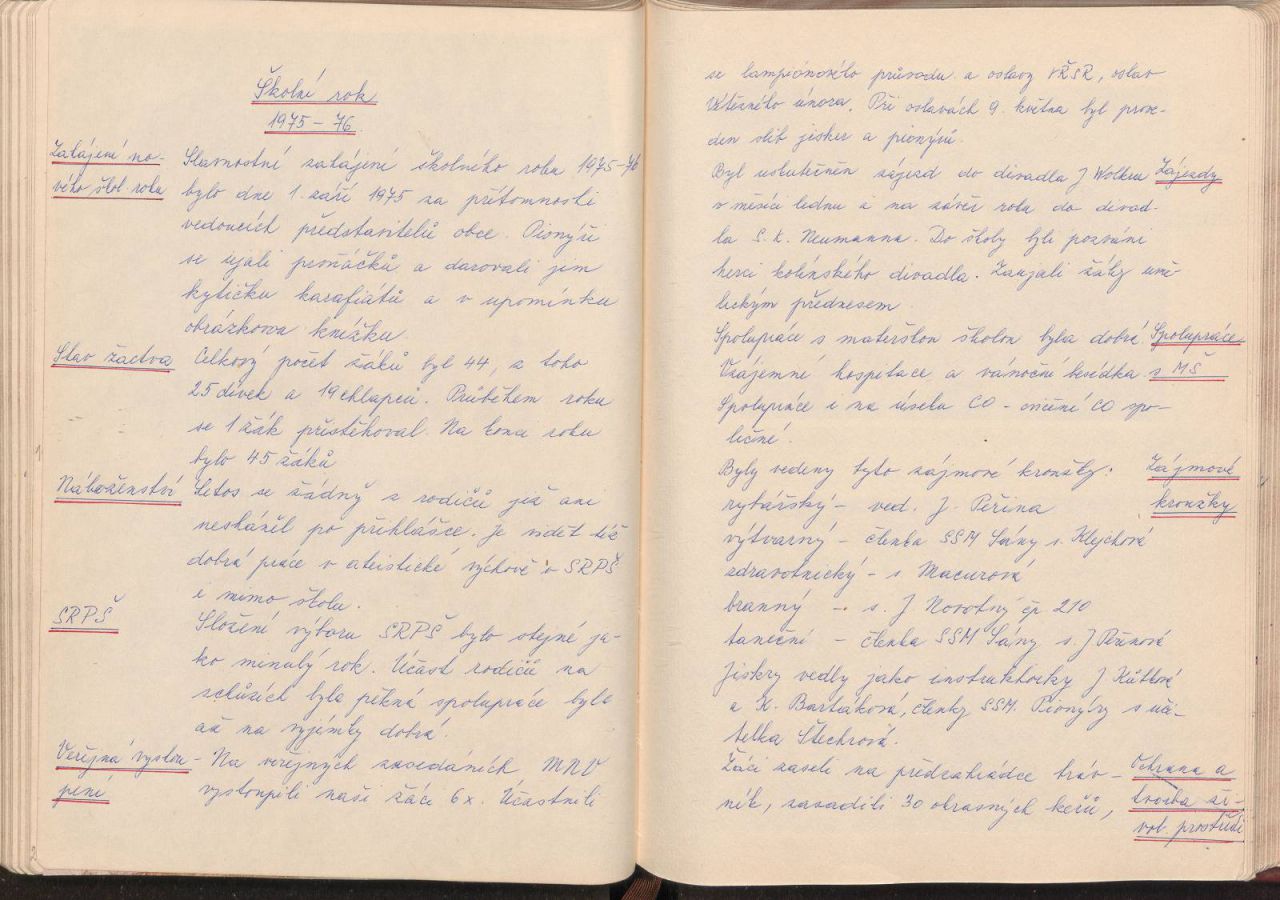 Školní rok
1975 – 76
Zahájení no-
vého škol. roku
Slavnostní zahájení školného roku 1975-76
bylo dne 1. září 1975 za přítomnosti
vedoucích představitelů obce. Pionýři
se ujali prvňáčků a darovali jim
kytičku karafiátů a v upomínku
obrázkovou knížku.
Stav žactva
Celkový počet žáků byl 44, z toho
25 dívek a 19 chlapců. Průběhem roku
se 1 žák přistěhoval. Na konci roku
bylo 45 žáků
Náboženství
Letos se žádný z rodičů již ani
nesháněl po přihlášce. Je vidět též
dobrá práce v ateistické výchově v SRPŠ
i mimo školu.
SRPŠ
Složení výboru SRPŠ bylo stejné ja-
ko minulý rok. Účast rodičů na
schůzích byla pěkná spolupráce byla
až na vyjímky dobrá.
Veřejná vystou-
pení
Na veřejných zasedáních MNV
vystoupili naši žáci 6x. Účastnili
se lampionového průvodu a oslavy VŘSR, oslav
Vítězného února. Při oslavách 9. května byl prove-
den slib jisker a pionýrů.
Byl uskutečněn zájezd do divadla J Wolkra
Zájezdy
v měsíci lednu i na závěr roku do divad-
la S. K. Neumanna. Do školy byli pozváni
herci kolínského divadla. Zaujali žáky umě-
leckým přednesem.
Spolupráce s mateřskou školou byla dobrá
Spolupráce
s MŠ
Vzájemné hospitace, a vánoční besídka
Spolupráce i na úseku CO – cvičení CO spo-
lečné.
Byly vedeny tyto zájmové kroužky:
Zájmové
kroužky
rybářský – ved. J. Peřina
výtvarný – členka SSM Sány s. Klejchová
zdravotnický – s Macurová
branný – s. J Novotný čp 210
taneční – členka SSM Sány s. J Peřinová
Jiskry vedly jako instruktorky J
a K. Bartáková, členky SSM. Pionýry s uči-
telka Štechrová.
Žáci zaseli na předzahrádce tráv-
ník, zasadili 30 okrasných keřů,
Ochrana a
tvorba ži-
vot. prostředí